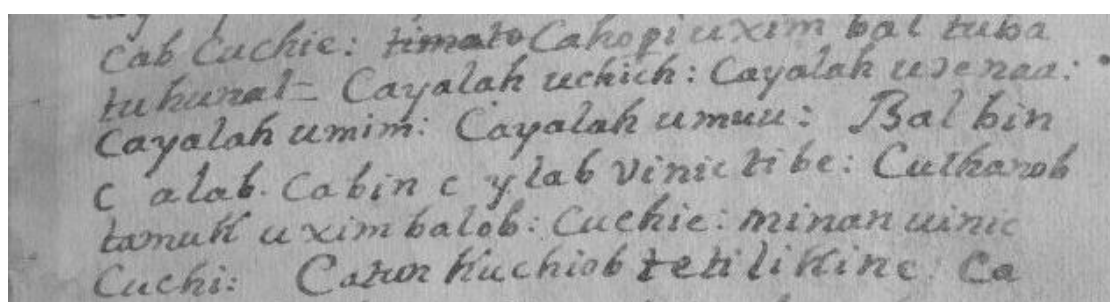 cab cuchie: timato Cahopi uxim bal tuba
tuhunal= Cayalah uchich: Cayalah uɔenaa:
Cayalah umim: Cayalah umuu: Bal bin
c alab. Cabin c ylab vinic tibe: Cuthanob
tamuk u xim balob: Cuchie: minan uinic
Cuchi: Catun Kuchiob teti liKine: Ca